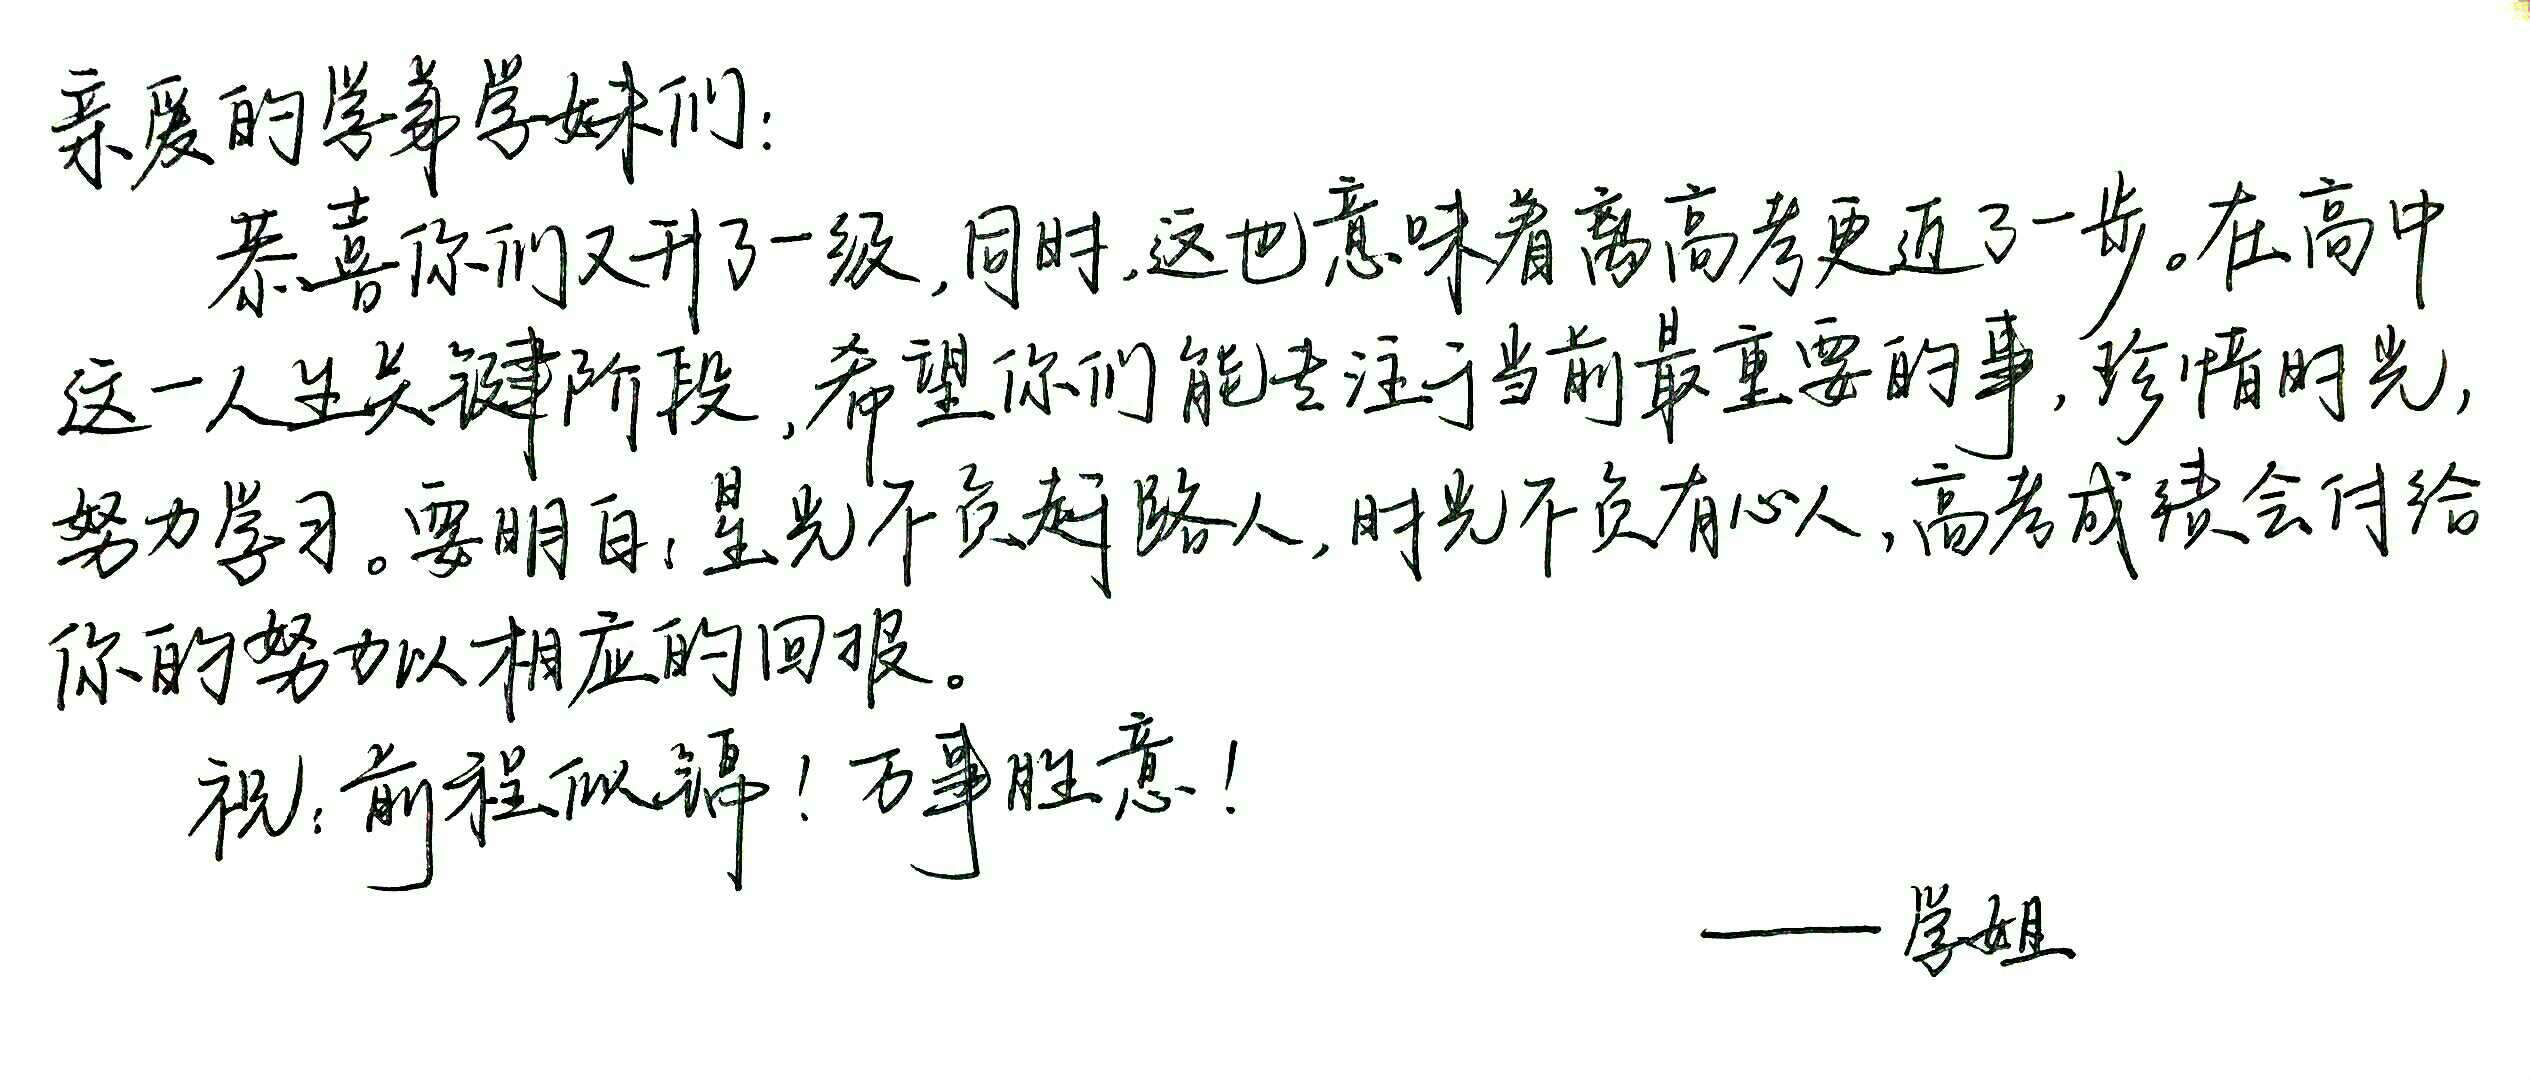 亲爱的学弟学妹们:
恭喜你们又升了一级,同时,这也意味着离高考更近了一步。在高中
这一人生关键阶段,希望你们能专注于当前最重要的事,珍惜时光,
努力学习。要明白:星光不负赶路人,时光不负有心人,高考成绩会付给
你的努力以相应的回报。
祝:前程似锦!万事胜意!
——学姐